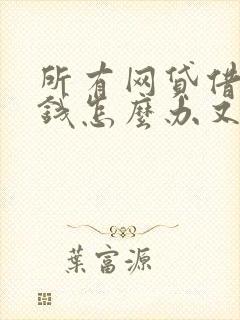 所有网贷借
钱怎麽办又
葉富源